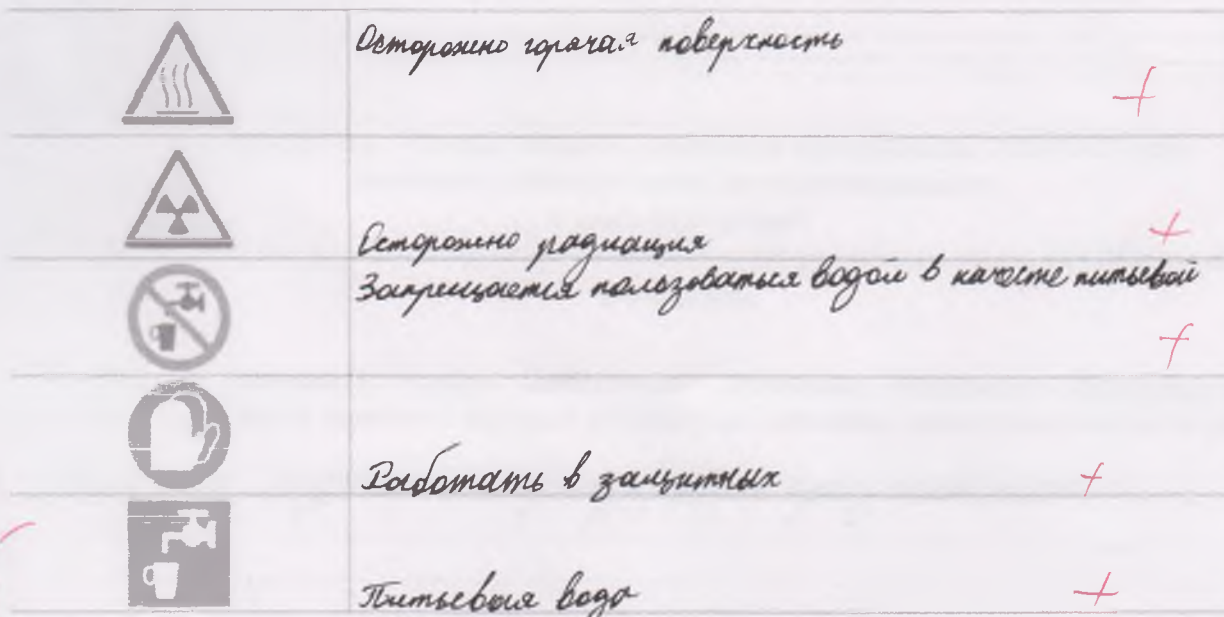 Осторожно горячая поверхность
+
Осторожно радиация +
Запрещается пользоваться водой в качестве питьевой
+
Работать в защитных +
Питьевая вода +